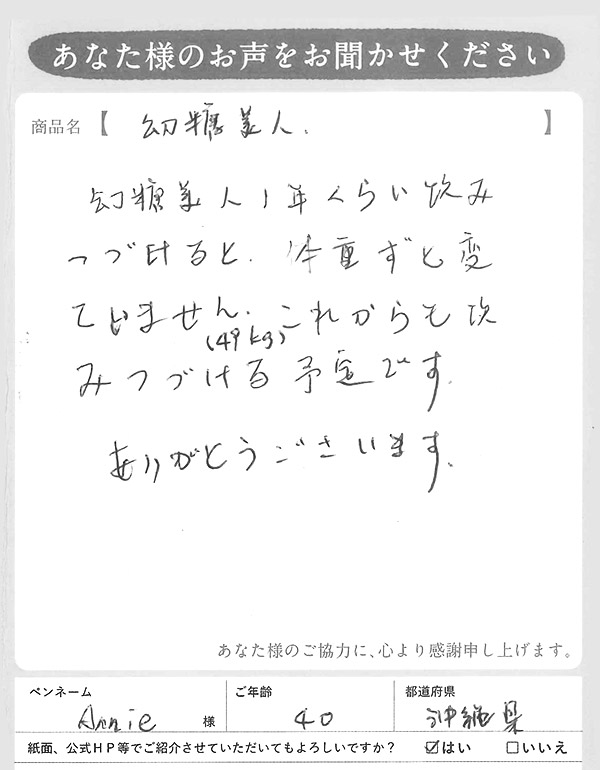 あなた様のお声をお聞かせください
商品名【 幻糖美人. 】
幻糖美人1年くらい飲み
つづけると、体重ずと変
ていません.これからも飲
(49kg)
みつづける予定です.
ありがとうございます.
あなた様のご協力に、心より感謝申し上げます。
ペンネーム
Annie 様
ご年齢
40
都道府県
沖縄県
紙面、公式HP等でご紹介させていただいてもよろしいですか? ☑はい □いいえ